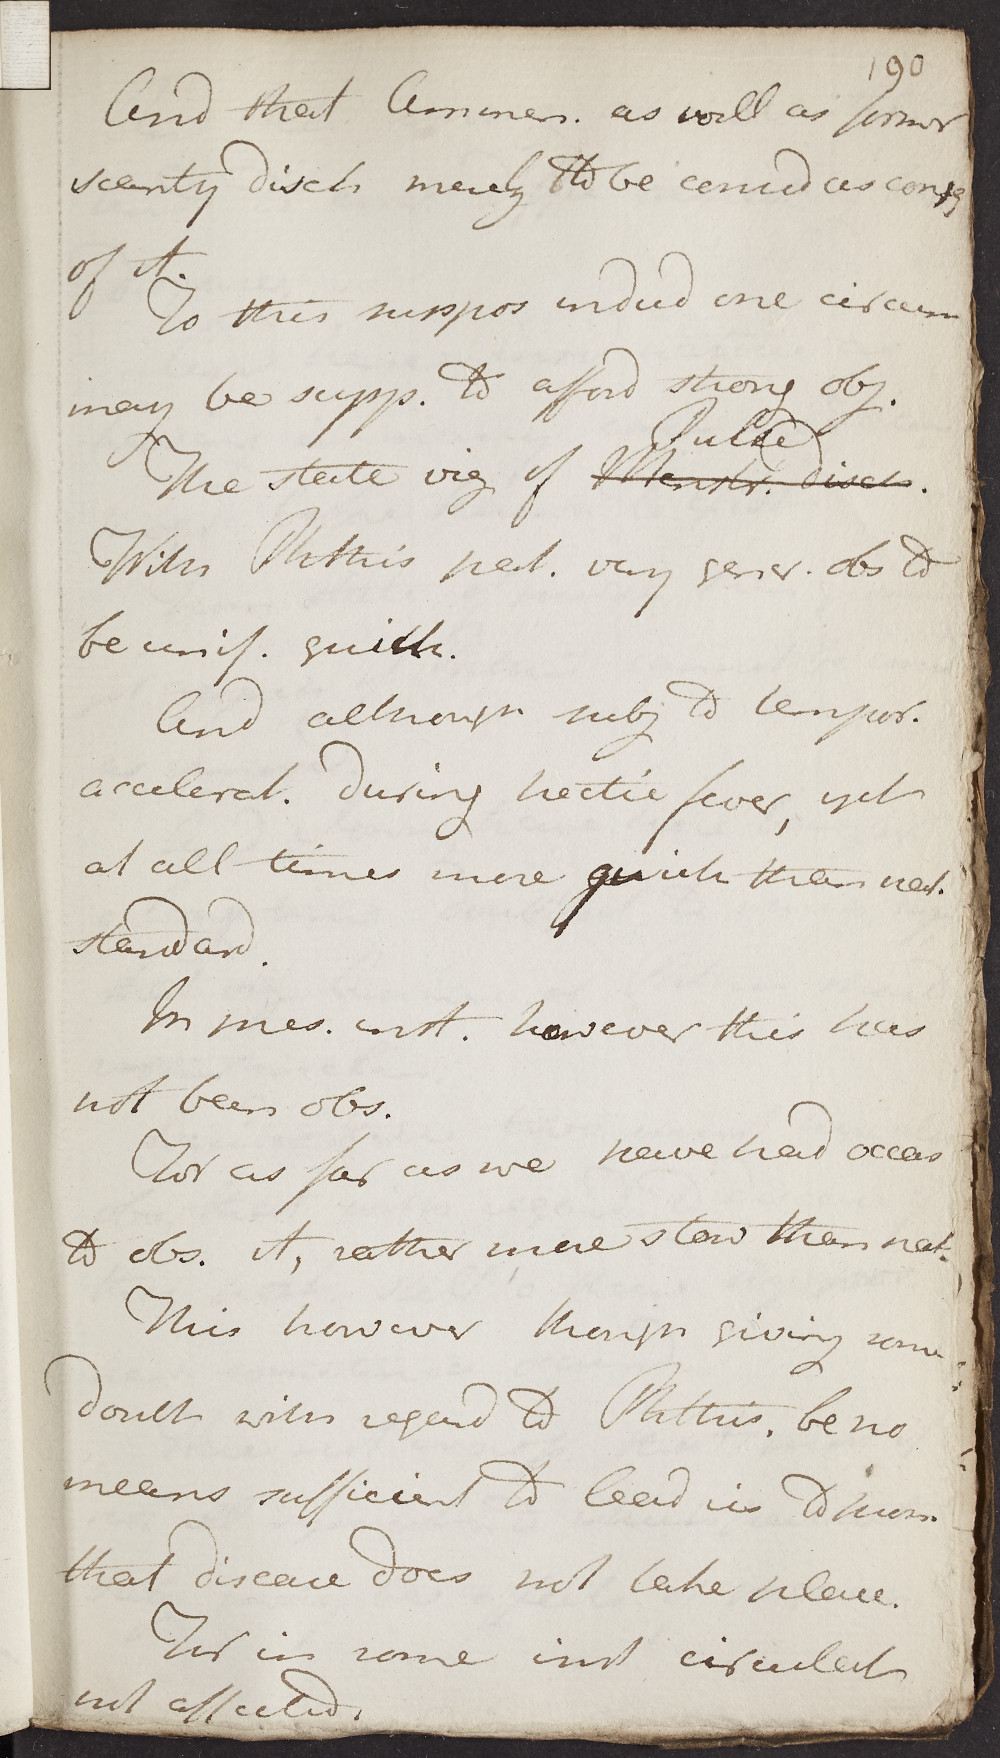 190
And that Amen. as well as former
scanty disch merely to be consid as conseq
of it.
To this suppos indeed one circum
may be supp. to afford strong obj.
Pulse
The state viz of Menstr. disch.
With Phthis pul. very gener. obs to
be unif. quick.
And although subj to tempor.
accelerat. During hectic fever, yet
at all times more quick than nat.
standard.
In pres. inst. however this has
not been obs.
For as far as we have had occas
to obs. it, rather more slow than nat.
This however though giving some
doubt with regard to Phthis. be no
means sufficient to lead us to pron.
that disease does not take place.
For in some inst circulat
not affected.